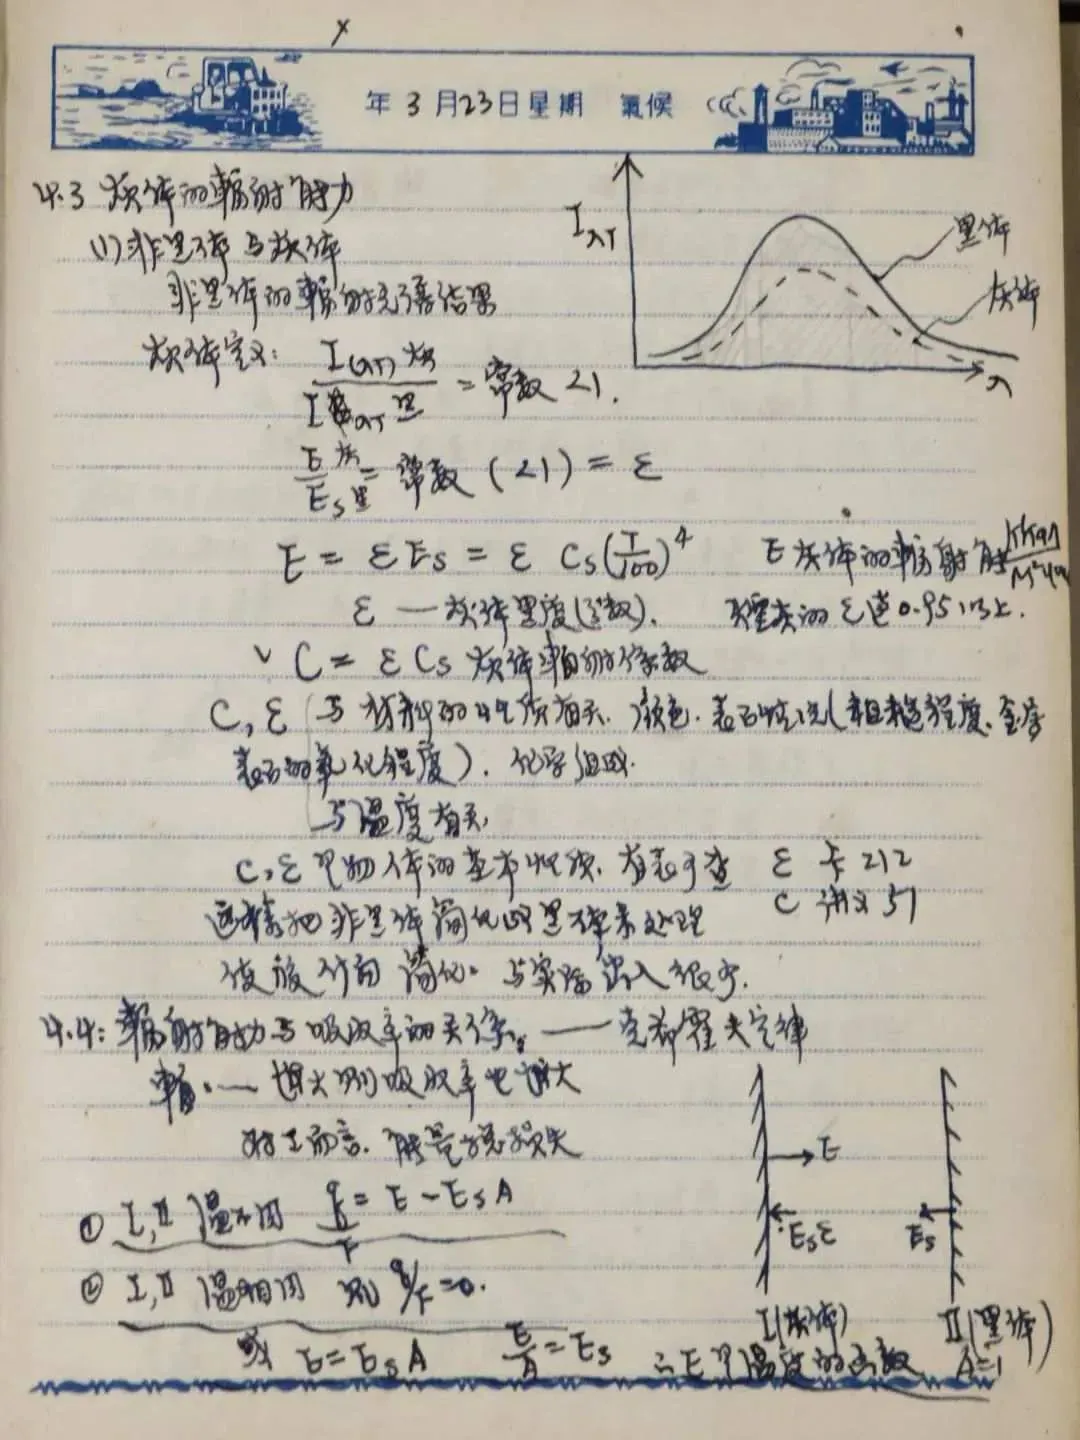 年 3 月 23 日 星期 氣候
4.3 灰体的辐射能力
(1) 非黑体与灰体
非黑体的辐射光谱结果
灰体定义: I(λT)灰 / IλT黑 = 常数 <1.
IλT
黑体
灰体
λ
E灰 / Es黑 = 常数 (<1) = ε
E = εEs = ε Cs(T/100)^4 E 灰体的辐射能
ε — 灰体黑度(系数). 的 ε 达 0.95 以上.
C = εCs 灰体辐射系数
C, ε 与材料的性质有关. 颜色. 表面情况(粗糙程度. 金属
表面的氧化程度). 化学组成.
与温度有关.
C, ε 是物体的基本性质. 有表可查 ε 卡 212
C 讲义 51
这样把非黑体简化以黑体来处理
简化. 与实际出入很少.
4.4: 辐射能力与吸收率的关系. —— 克希霍夫定律
辐.— 增大则吸收率也增大
对 I 而言. 能量总损失
① I, II 温不同 q/F = E - EsA
② I, II 温相同 则 q/F = 0.
或 E = EsA E/A = Es ∴ E 是温度的函数
E
Esε
Es
I (灰体)
II (黑体)
A=1